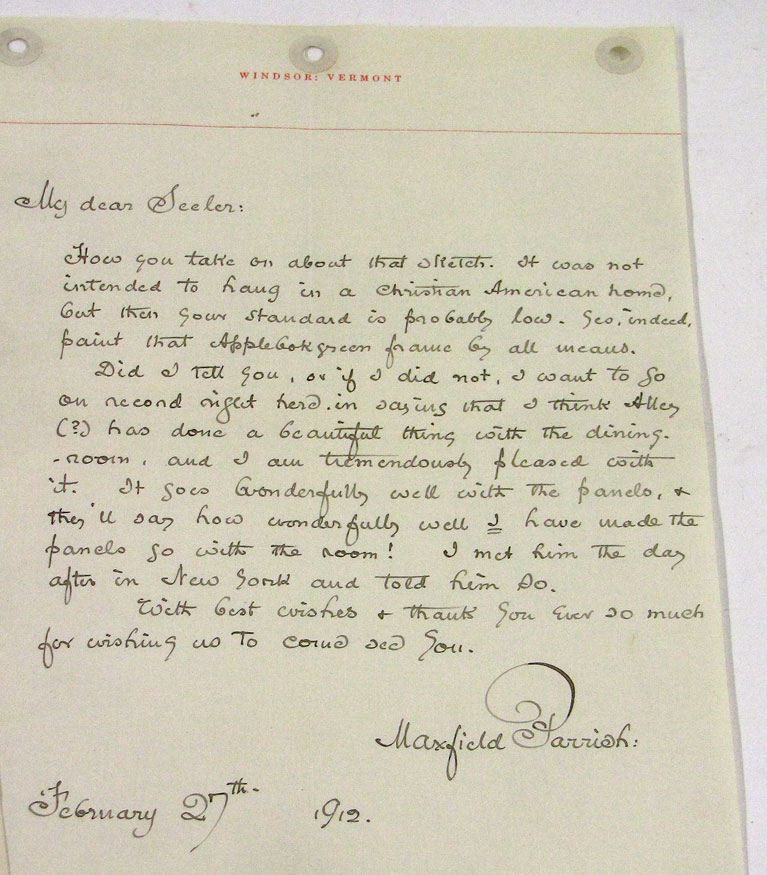 WINDSOR: VERMONT
My dear Seeler:
How you take on about that sketch. It was not
intended to hang in a Christian American home,
but then your standard is probably low. Yes, indeed,
paint that Applebokgreen frame by all means.
Did I tell you, or if I did not, I want to go
on record right here in saying that I think Alley
(?) has done a beautiful thing with the dining-
-room, and I am tremendously pleased with
it. It goes wonderfully well with the panels, &
they'll say how wonderfully well I have made the
panels go with the room! I met him the day
after in New York and told him so.
With best wishes & thank you ever so much
for wishing us to come see you.
Maxfield Parrish:
February 27th. 1912.